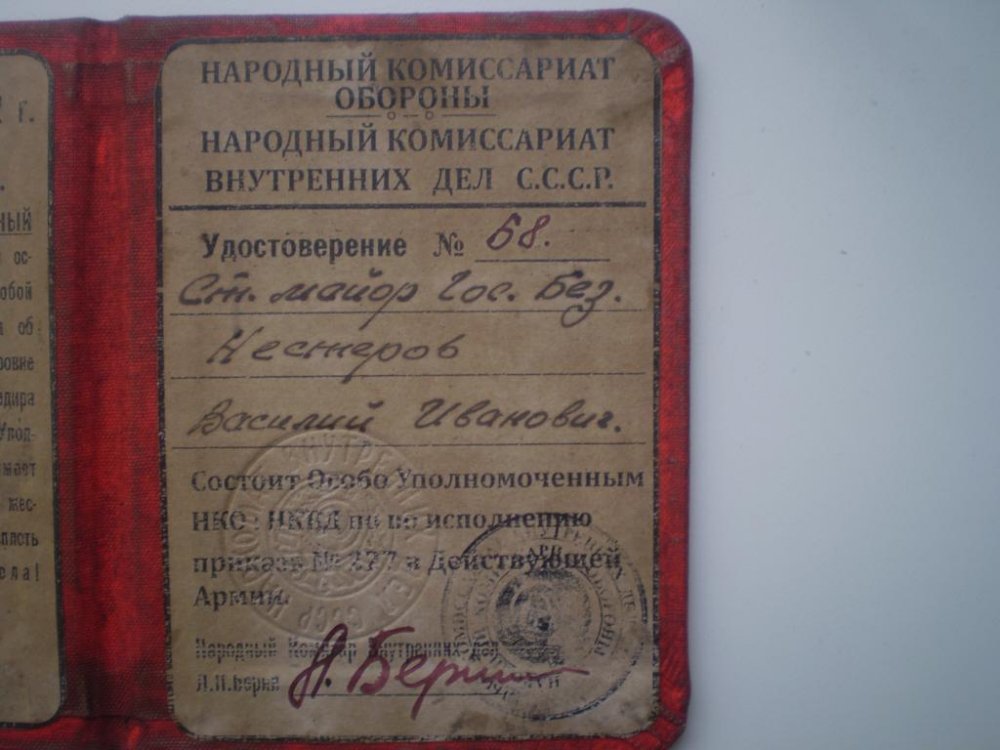 г.
ный
ос-
обой
об
ровне
дира
Упол-
мает
жес-
плоть
ела!
НАРОДНЫЙ КОМИССАРИАТ
ОБОРОНЫ
НАРОДНЫЙ КОМИССАРИАТ
ВНУТРЕННИХ ДЕЛ С.С.С.Р.
Удостоверение № 68.
Ст. майор Гос. Без.
Нестеров
Василий Иванович.
Состоит Особо Уполномоченным
НКО НКВД по по исполнению
приказа № 227 в Действующей
Армии.
Народный Комиссар Внутренних дел
Л.П.Берия